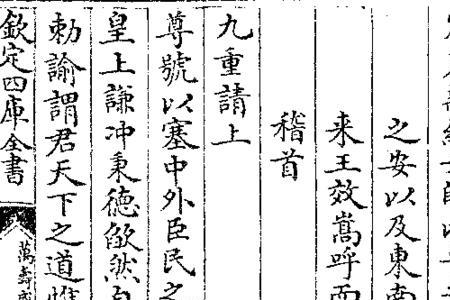 之安以及東南
来王效嵩呼而
稽首
九重請上
尊號以塞中外臣民之
皇上謙冲秉德欿然自
勅諭謂君天下之道惟
欽定四庫全書
萬壽盛